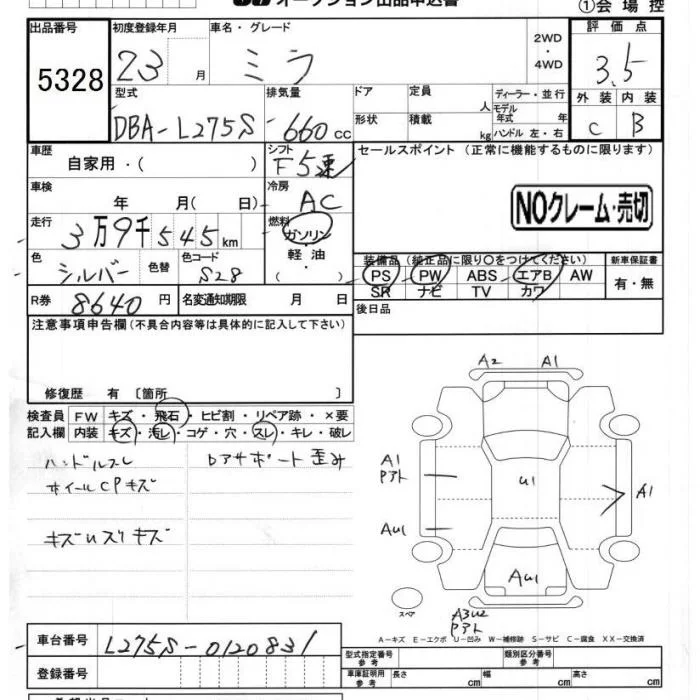 オークション出品申込書
①会場控
出品番号 初度登録年月 車名・グレード 2WD・4WD 評価点
5328 23 月 ミラ 3.5
型式 排気量 ドア 定員 人 ディーラー・並行 外装 内装
DBA-L275S 660cc 形状 積載 kg モデル年式 年 ハンドル 左・右 C B
車歴 シフト セールスポイント (正常に機能するものに限ります)
自家用・( ) F5速
車検 冷房
年 月( 日) AC
NOクレーム・売切
走行 燃料
3万9千545km ガソリン・軽油・( )
色 色替 色コード 装備品 (純正品に限り○をつけてください) 新車保証書
シルバー S28 PS PW ABS エアB AW 有・無
SR ナビ TV カワ
R券 8640円 名変通知期限 月 日 後日品
注意事項申告欄(不具合内容等は具体的に記入して下さい)
修復歴 有 〔箇所 〕
検査員 FW キズ・飛石・ヒビ割・リペア跡・×要
記入欄 内装 キズ・汚レ・コゲ・穴・スレ・キレ・破レ
ハンドルスレ
ホイールCPキズ
キズUズリキズ
Rアサポート歪み
A2 A1
A1
Pアト
U1
A1
AU1
AU1
スペア
A3U2
Pアト
A-キズ E-エクボ U-凹み W-補修跡 S-サビ C-腐食 XX-交換済
車台番号 L275S-0120831
型式指定番号 参考 類別区分番号 参考
登録番号
車庫証明用 参考 長さ cm 幅 cm 高さ cm